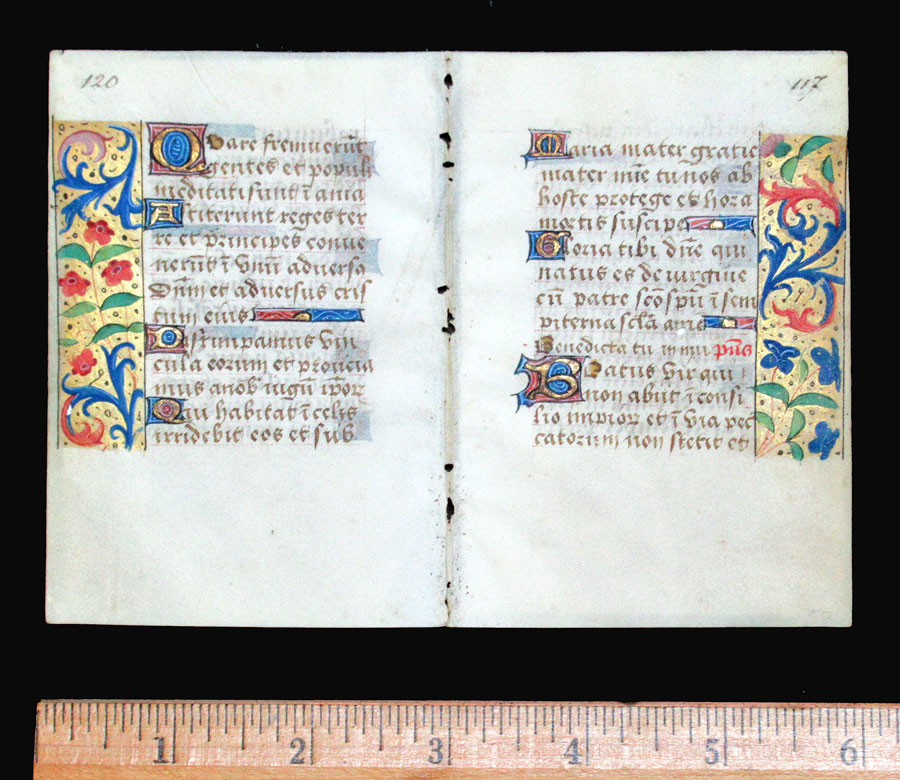 120
Quare fremuerūt
gentes et populi
meditati sunt ī ania
Astiterunt reges ter
re et principes conue
nerūt ī vnū adversꝰ
Dn̄m et adversus cris
tum eius
Dirūmpamus vin
cula eorum et proiicia
mus a nob iugū ipoꝝ
Qui habitat ī celis
irridebit eos et sub
117
Maria mater gratie
mater mīe tu nos ab
hoste protege et hora
mortis suscipe
Gloria tibi dn̄e qui
natus es de virgine
cū patre scō spū ī sem
piterna secla amē
Benedicta tu in mu p̄us
Beatus Vir qui
non abiit ī consi
lio impioꝝ et ī via pec
catorum non stetit et
1 2 3 4 5 6